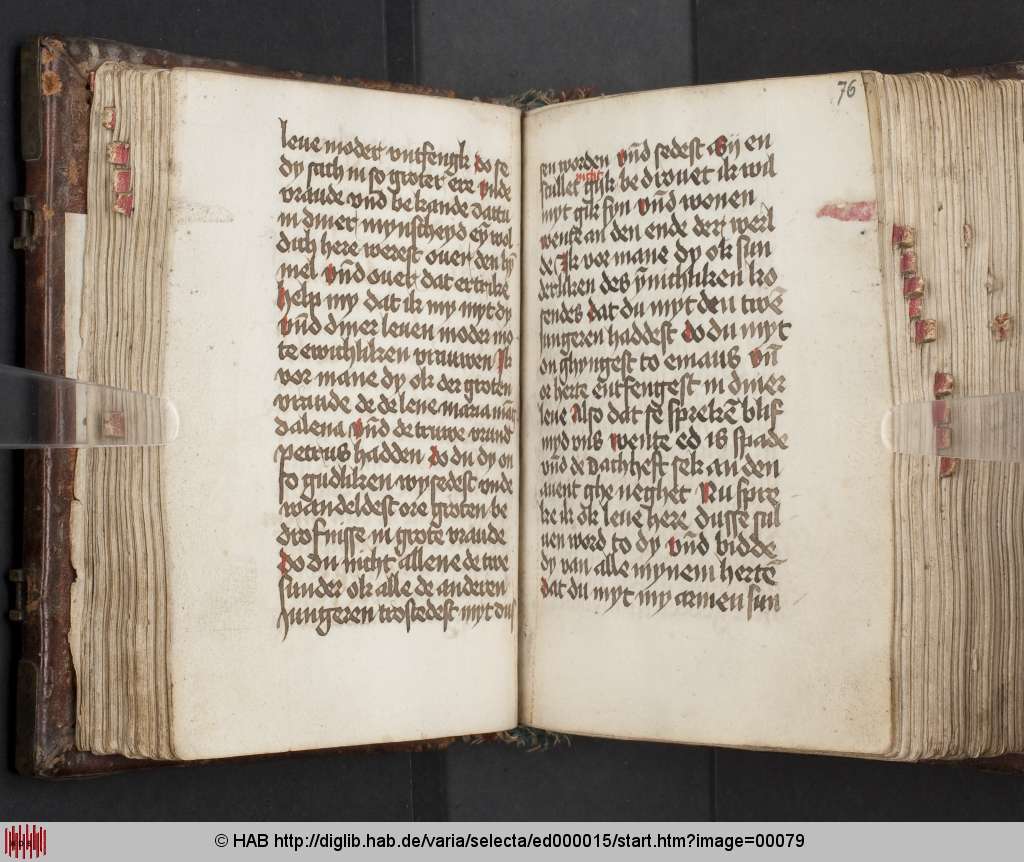 leue moder vntfengk do se
dy sach in so groter ere vnde
vraude vnd be kande dattu
in diner mynscheyd eyn wol
dich here werest ouer den hy
mel vnd ouer dat ertrike
help my dat ik my myt dy
vnd diner leuen moder mo
te ewichliken vrauwen Ik
vor mane dy ok der groten
vraude de de leue maria mac
dalena vnd de truwe vrund
petrus hadden do du dy on
so gudliken wysedest vnde
wandeldest ore groten be
drofnisse in grote vraude
do du nicht allene de twe
sunder ok alle de anderen
Jungeren trostedest myt dus
76
sen worden vnd sedest Gij en
scullet nicht gik be drouet ik wil
myt gik syn vnd wonen
wente an den ende der werl
de Ik vor mane dy ok sun
derliken des ynnichliken ko
sendes dat du myt den twen
jungeren haddest do du myt
on ghyngest to emaus vnd
or herte entfengest in diner
leue Also dat se spreken blif
myd vns wente ed is spade
vnd de dach heft sek an den
auent ghe neghet Nu spre
ke ik ok leue here dusse sul
uen word to dy vnd bidde
dy van alle mynem herten
dat du myt my armen sun
© HAB http://diglib.hab.de/varia/selecta/ed000015/start.htm?image=00079